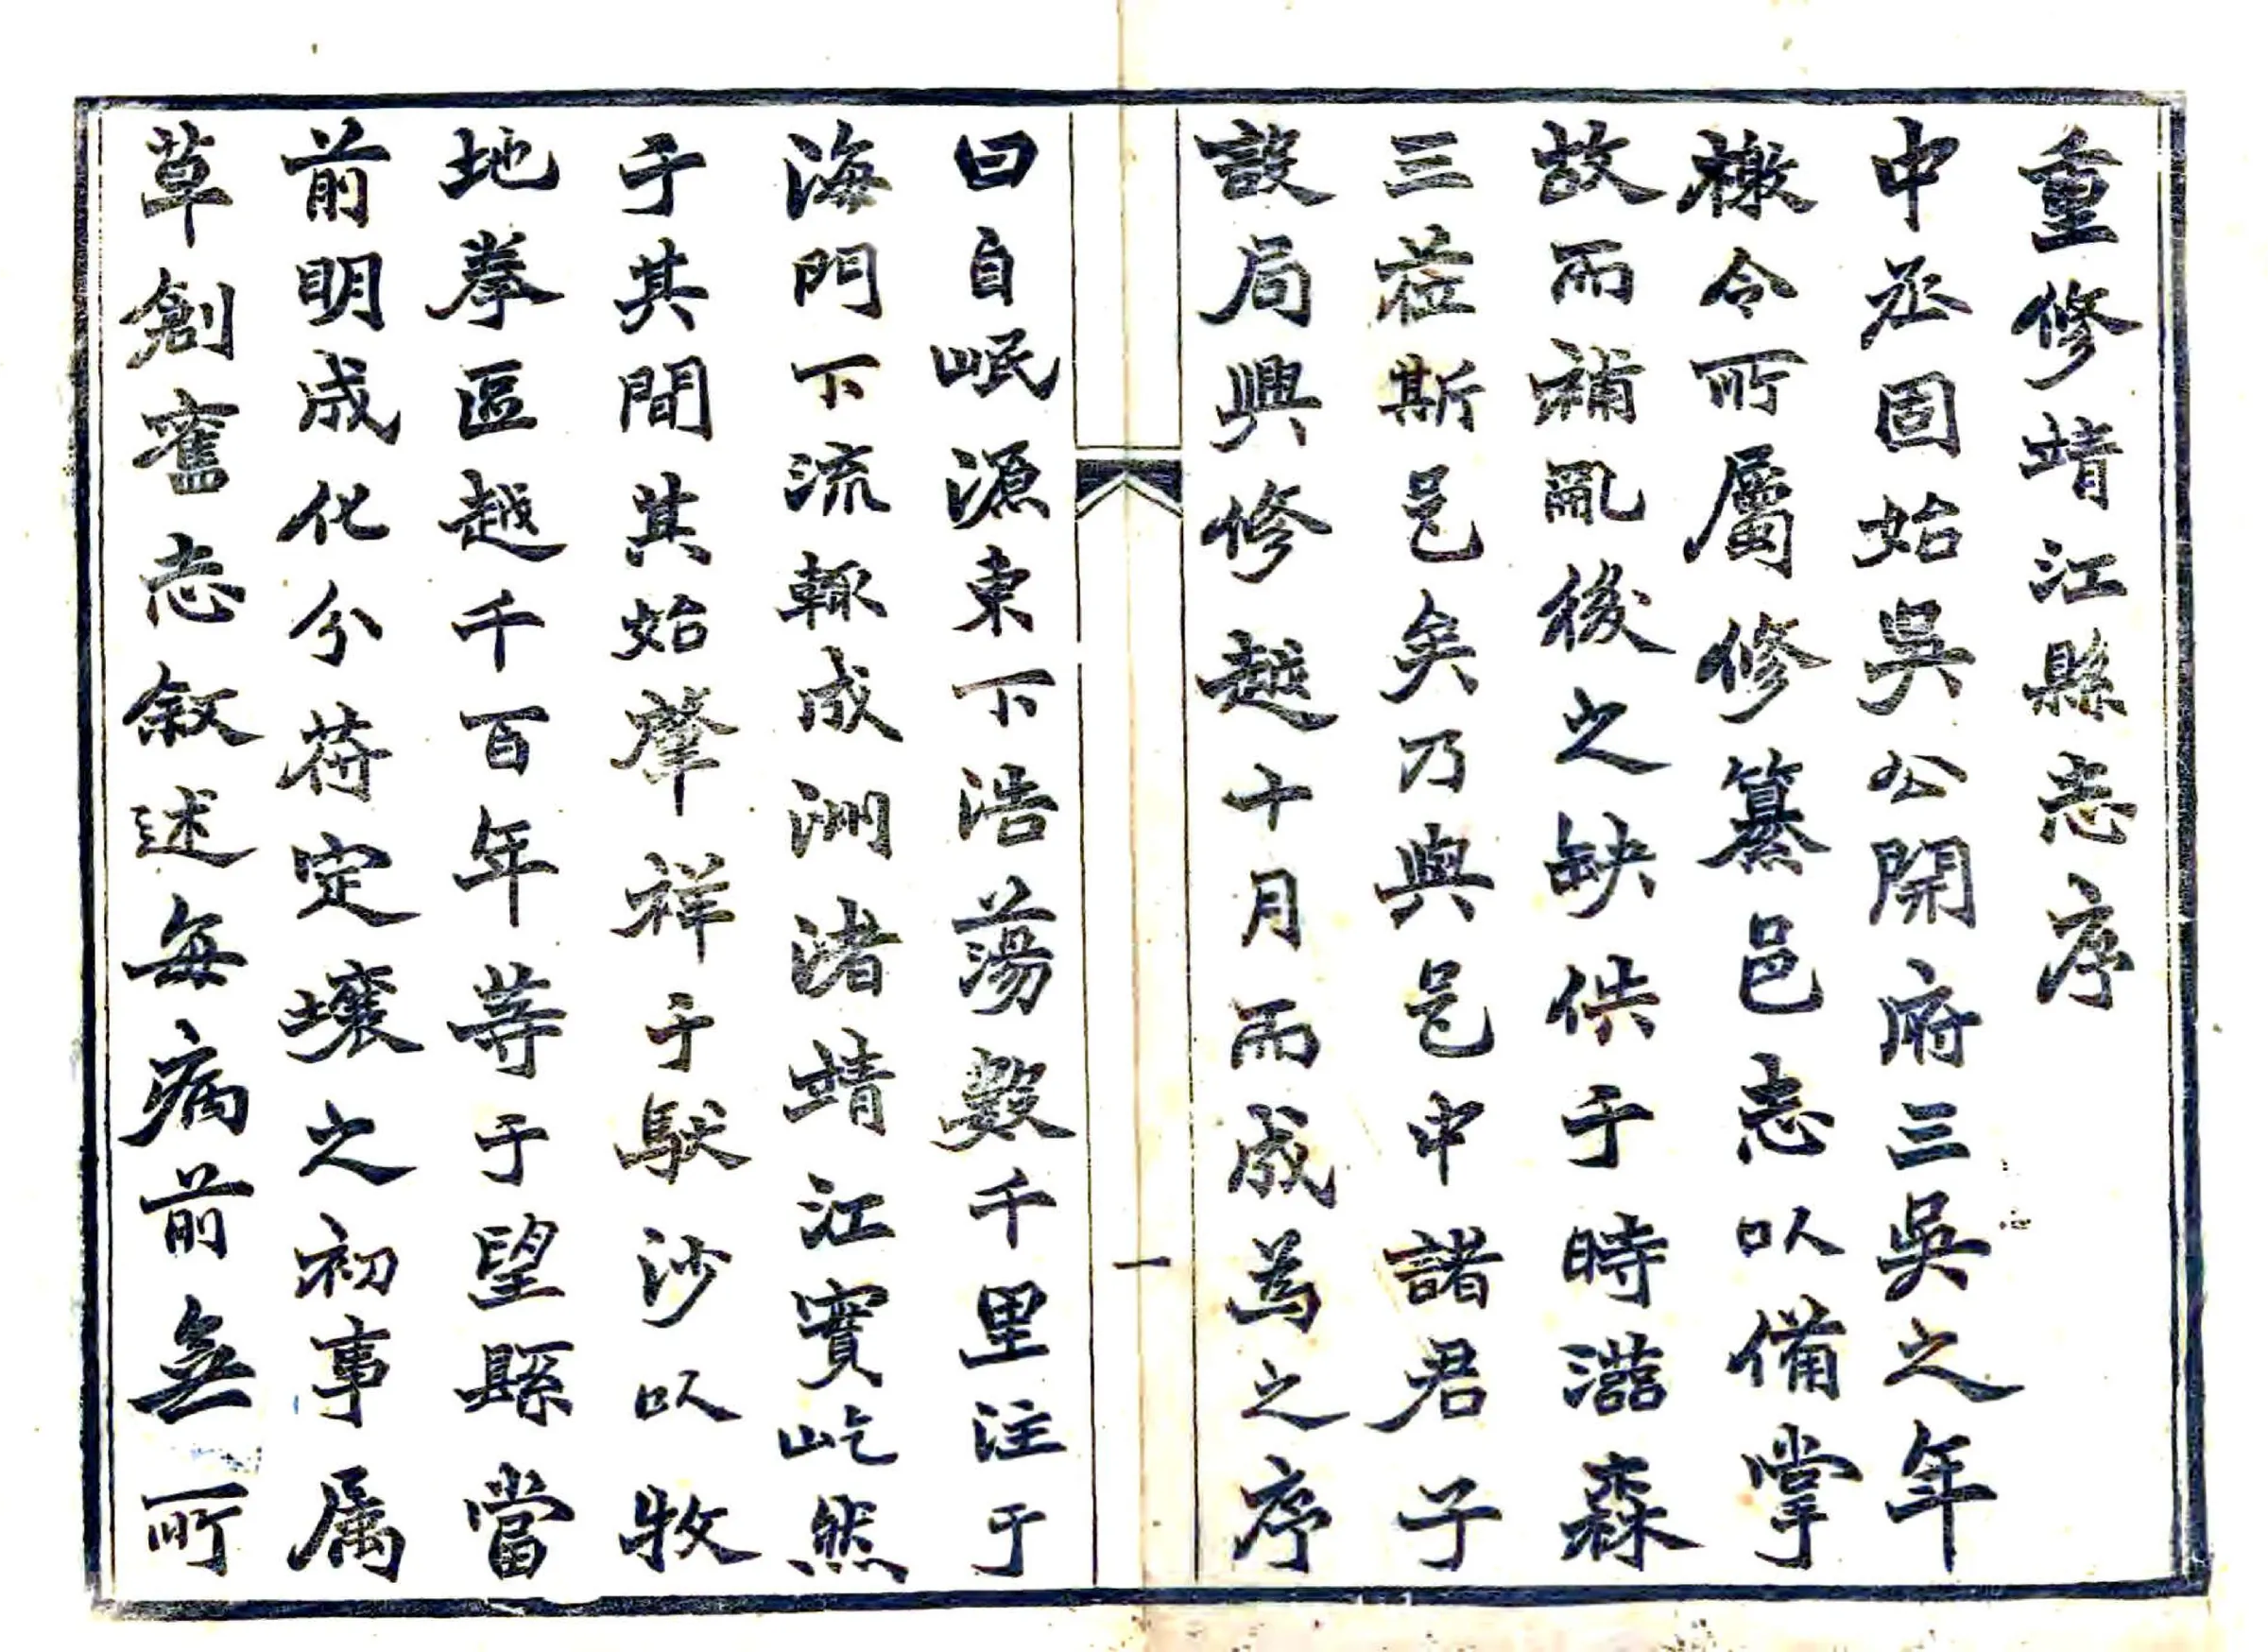 重修靖江縣志序
中丞固始吳公開府三吳之年
檄令所屬修纂邑志以備掌
故而補亂後之缺佚于時瀶森
三莅斯邑矣乃與邑中諸君子
設局興修越十月而成爲之序
一
曰自岷源東下浩蕩數千里注于
海門下流輒成洲渚靖江實屹然
于其間其始肇祥于馱沙以牧
地拳區越千百年等于望縣當
前明成化分符定壤之初事属
草創舊志叙述每病前無所